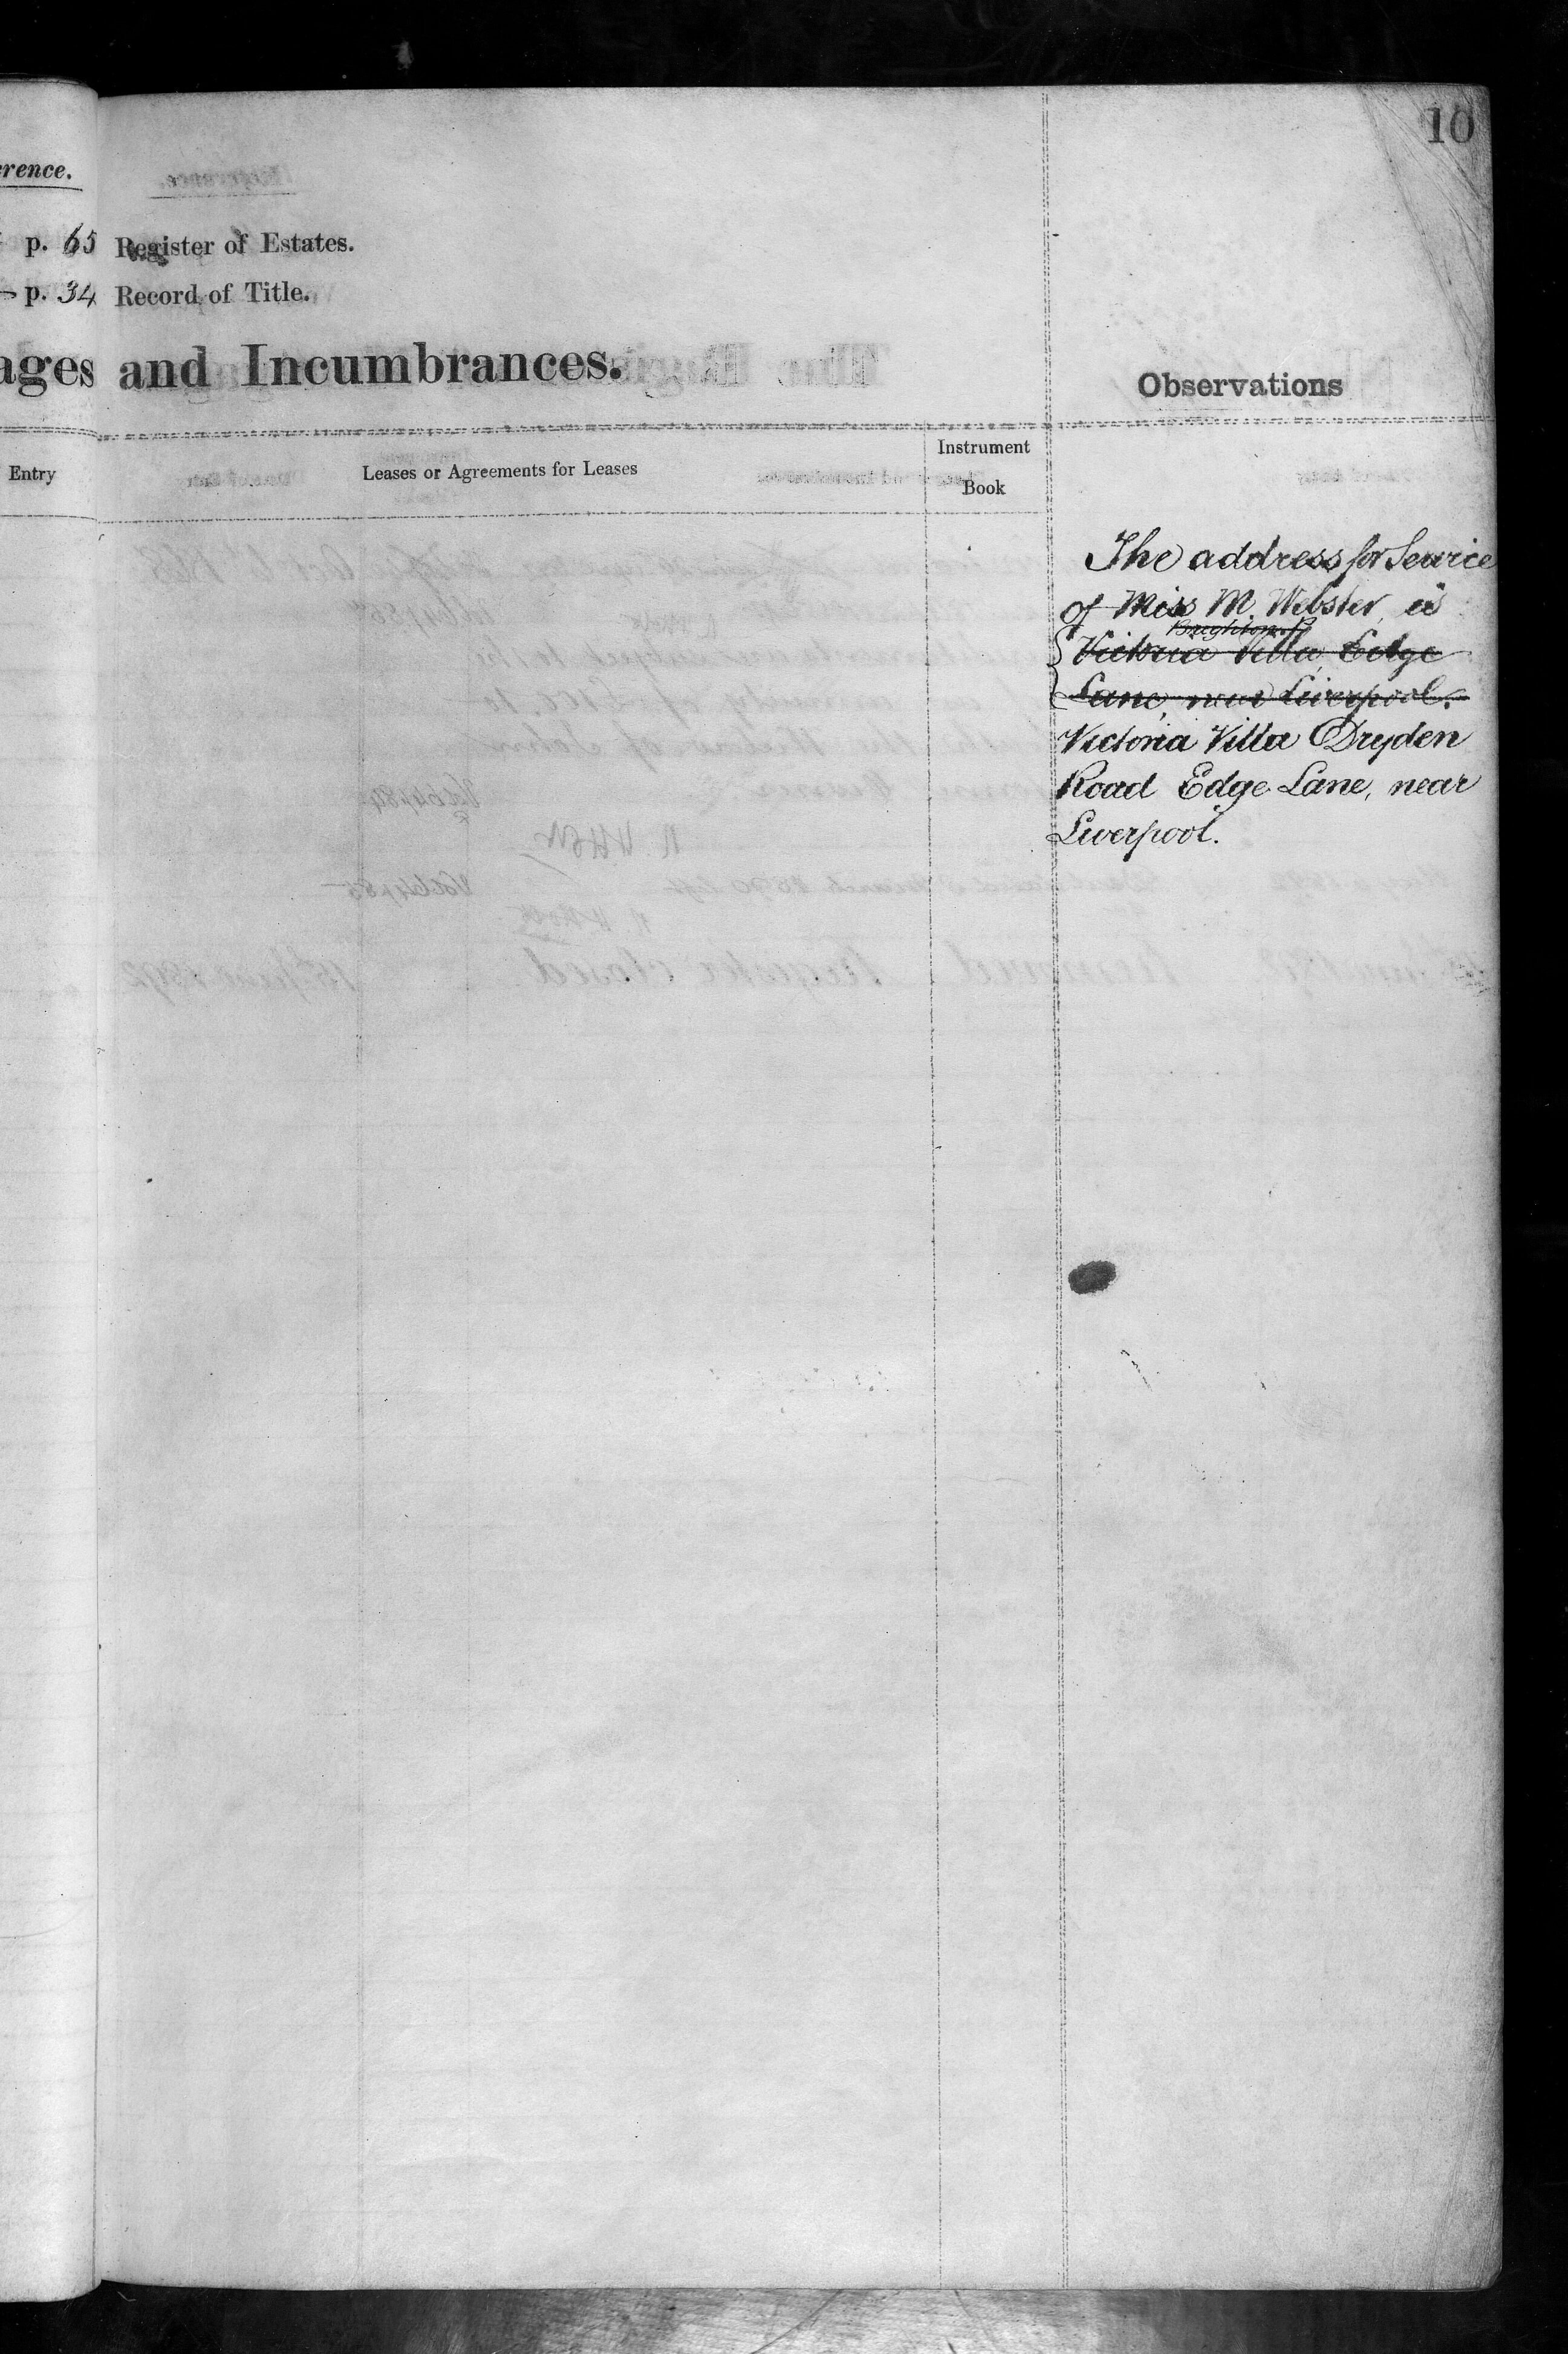 10
erence.
p. 65 Register of Estates.
p. 34 Record of Title.
ages and Incumbrances.
Observations
Entry
Leases or Agreements for Leases
Instrument
Book
The address for Service
of Miss M. Webster, is
Victoria Villa, Edge
Lane, near Liverpool.
Victoria Villa Dryden
Road Edge Lane, near
Liverpool.